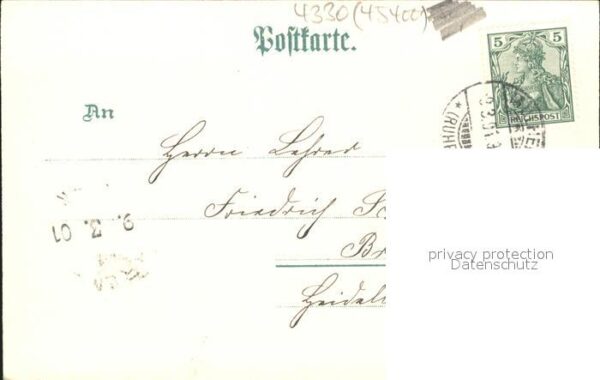 4330(45400)
Postkarte.
5 5
REICHSPOST
An
Herrn Lehrer
Friedrich
(RUHR
9. 3. 01
privacy protection
Datenschutz